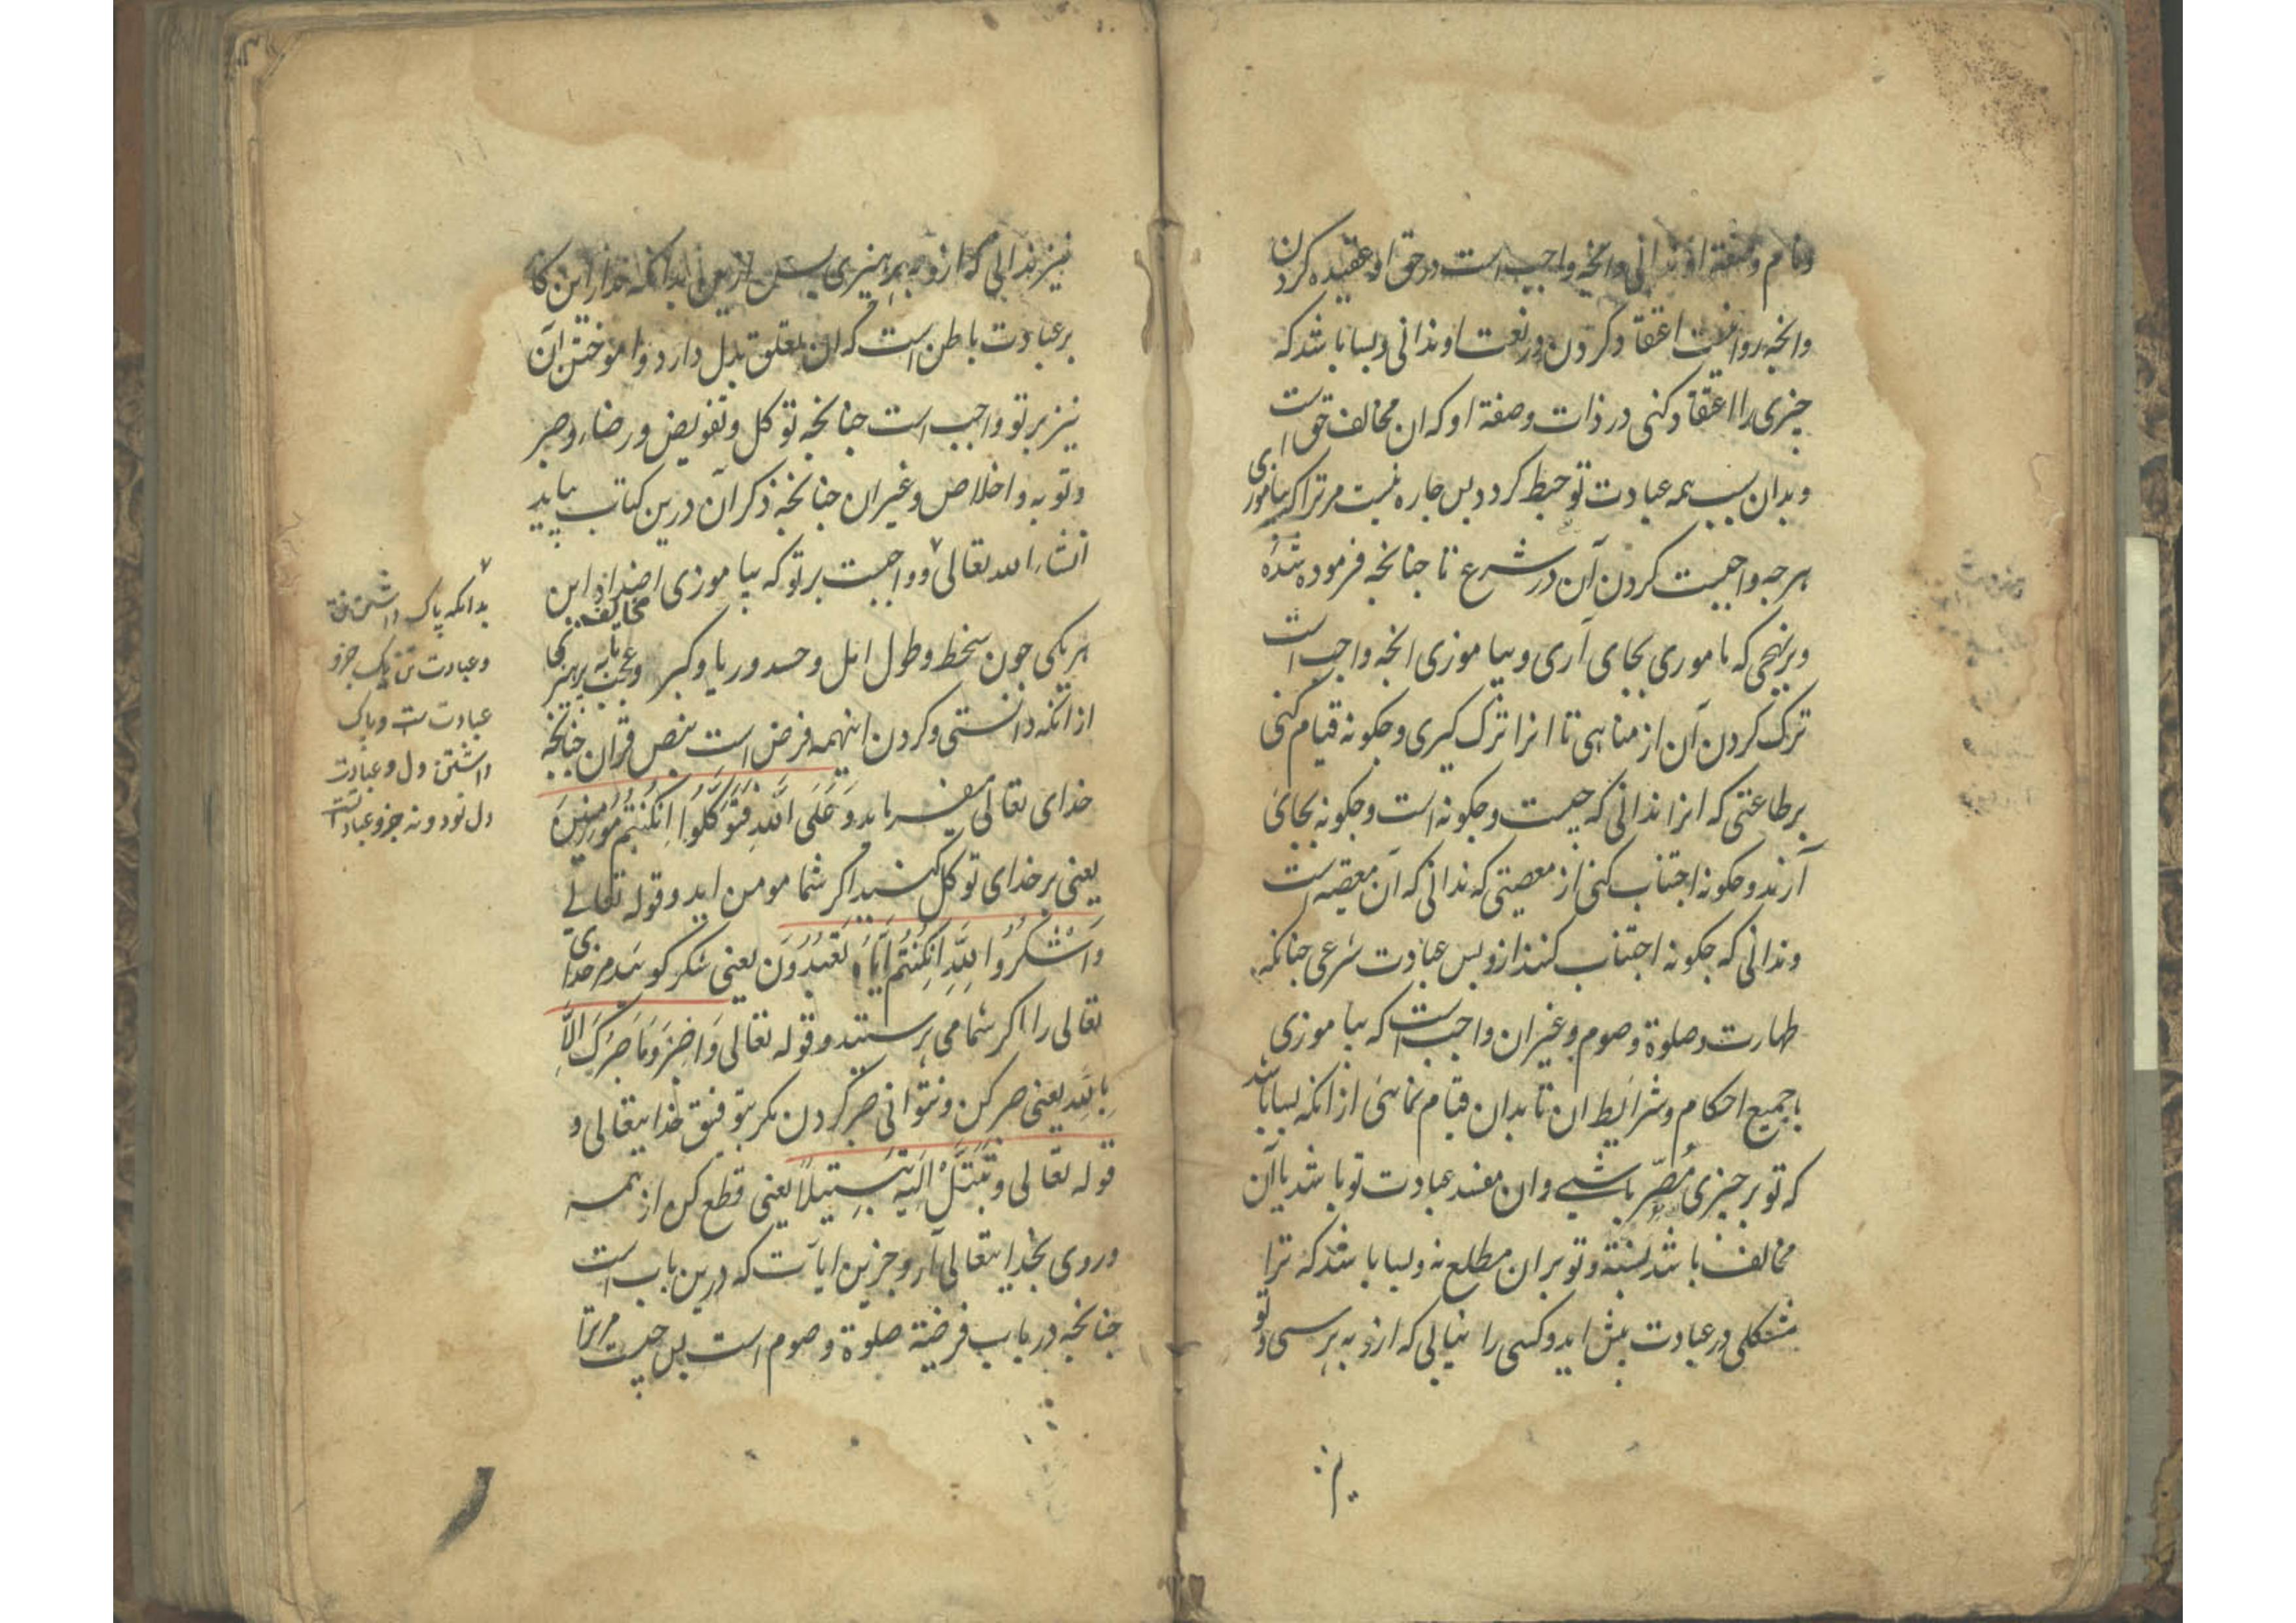 ونام وصفة او ندانی وانچه واجب است در حق او عقیده کردن
وانچه روانیست اعتقاد کردن در نعت او ندانی وبسا باشد که
چیزی را اعتقاد کنی در ذات وصفة او که ان مخالف حق است
وبدان سبب همه عبادت تو حبط کردد بس جاره نیست مر ترا که بیاموزی
هرجه واجبست کردن آن در شرع تا جنانچه فرموده شده
وبر نهجی که ماموری بجای آری وبیاموزی انچه واجب است
ترک کردن آن از مناهی تا انرا ترک کیری وجکونه قیام کنی
بر طاعتی که انرا ندانی که جیست وجکونه است وجکونه بجای
آرند وجکونه اجتناب کنی از معصیتی که ندانی که آن معصیه است
وندانی که جکونه اجتناب کنند ازو بس عبادت شرعی جنانکه
طهارت وصلوة وصوم وغیر ان واجب است که بیاموزی
با جمیع احکام وشرایط ان تا بدان قیام نمائی از انکه بسا باشد
که تو بر جیزی مصر باشی وان مفسد عبادت تو باشد یا آن
مخالف باشد بسنة وتو بران مطلع نه وبسا باشد که ترا
مشکلی در عبادت بیش اید وکسی را نیابی که ازو به پرسی وتو
نیز
نیز ندانی که ازو به پرهیزی بس ازین بدانکه مدار این کا
بر عبادت باطن است که ان تعلق بدل دارد واموختن آن
نیز بر تو واجب است جنانچه توکل وتفویض ورضاء وصبر
وتوبه واخلاص وغیر ان جنانچه ذکر آن درین کتاب بیاید
انشاء الله تعالی وواجبست بر تو که بیاموزی اضداد این
مخالف
هر یکی جون سخط وطول امل وحسد وریا وکبر وعجب تا به پرهیز کنی
از انکه دانستی وکردن اینهمه فرض است بنص قران جنانچه
خدای تعالی میفرماید وَعَلَی اللهِ فَتَوَكَّلُوا اِنْ كُنْتُمْ مُؤْمِنِينَ
یعنی بر خدای توکل کنید اکر شما مومن اید وقوله تعالی
وَاشْكُرُوا لِلَّهِ اِنْ كُنْتُمْ اِيَّاهُ تَعْبُدُونَ یعنی شکر کویید مر خدای
تعالی را اکر شما می پرستید وقوله تعالی وَاصْبِرْ وَمَا صَبْرُكَ اِلَّا
بِاللهِ یعنی صبر کن ونتوانی صبر کردن مکر بتوفیق خدایتعالی و
قوله تعالی وَتَبَتَّلْ اِلَيْهِ تَبْتِيلًا یعنی قطع کن از همه
وروی بخدایتعالی آر وجزین ایات که درین باب است
جنانچه در باب فرضیة صلوة وصوم است بس جیست مر ترا
بدانکه پاک داشتن تن
وعبادت تن یک جزو
عبادت ست وپاک
داشتن دل وعبادت
دل نود ونه جزو عبادتست